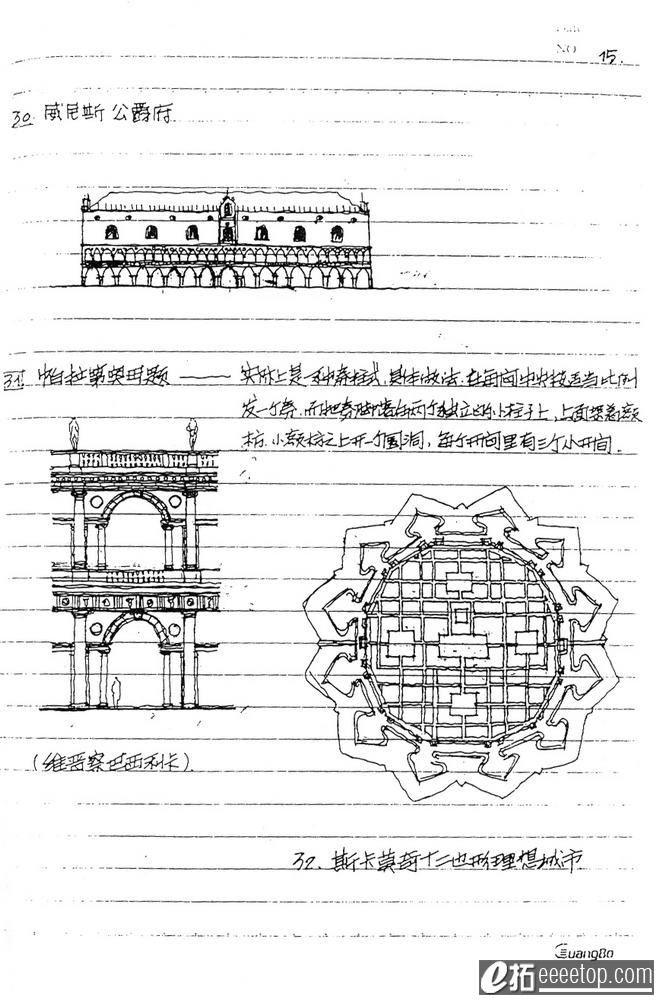 NO 15.
30. 威尼斯公爵府
31. 帕拉第奥母题 —— 实际上是一种券柱式,具体做法:在每间中央按适当比例
发一个券,而把券脚落在两个独立的小柱子上,上面架着额
枋,小额枋之上开一个圆洞,每个开间里有三个小开间.
(维晋察巴西利卡)
32. 斯卡莫奇十二边形理想城市
GuangBo
e拓 eeeetop.com